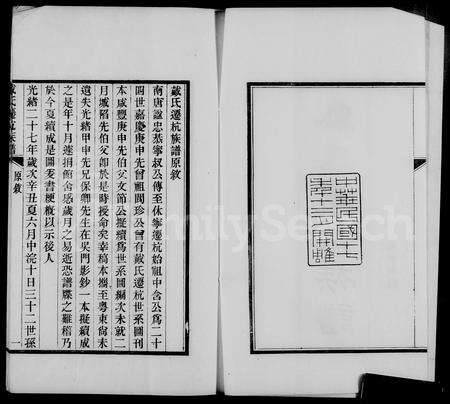 中華民國十七
年十二月開雕
戴氏遷杭族譜原敘
南唐諡忠基寧叔公傳至休寧遷杭始祖中含公爲二十
四世嘉慶庚申先曾祖閬珍公曾有戴氏遷杭世系圖刊
本咸豐庚申先伯父文節公擬續爲世系圖瀾次未就二
月城陷先伯父卽於是時授命矣幸稿本攜至粵東尙未
遺失光緒甲申先兄保卿先生在吳門影鈔一本擬續成
之是年十月遽捐館舍感歲月之易逝恐譜牒之難稽乃
於今夏續成是圖爰書梗槪以示後人
光緒二十七年歲次辛丑夏六月中浣十日三十二世孫
原敘
一
FamilySearch